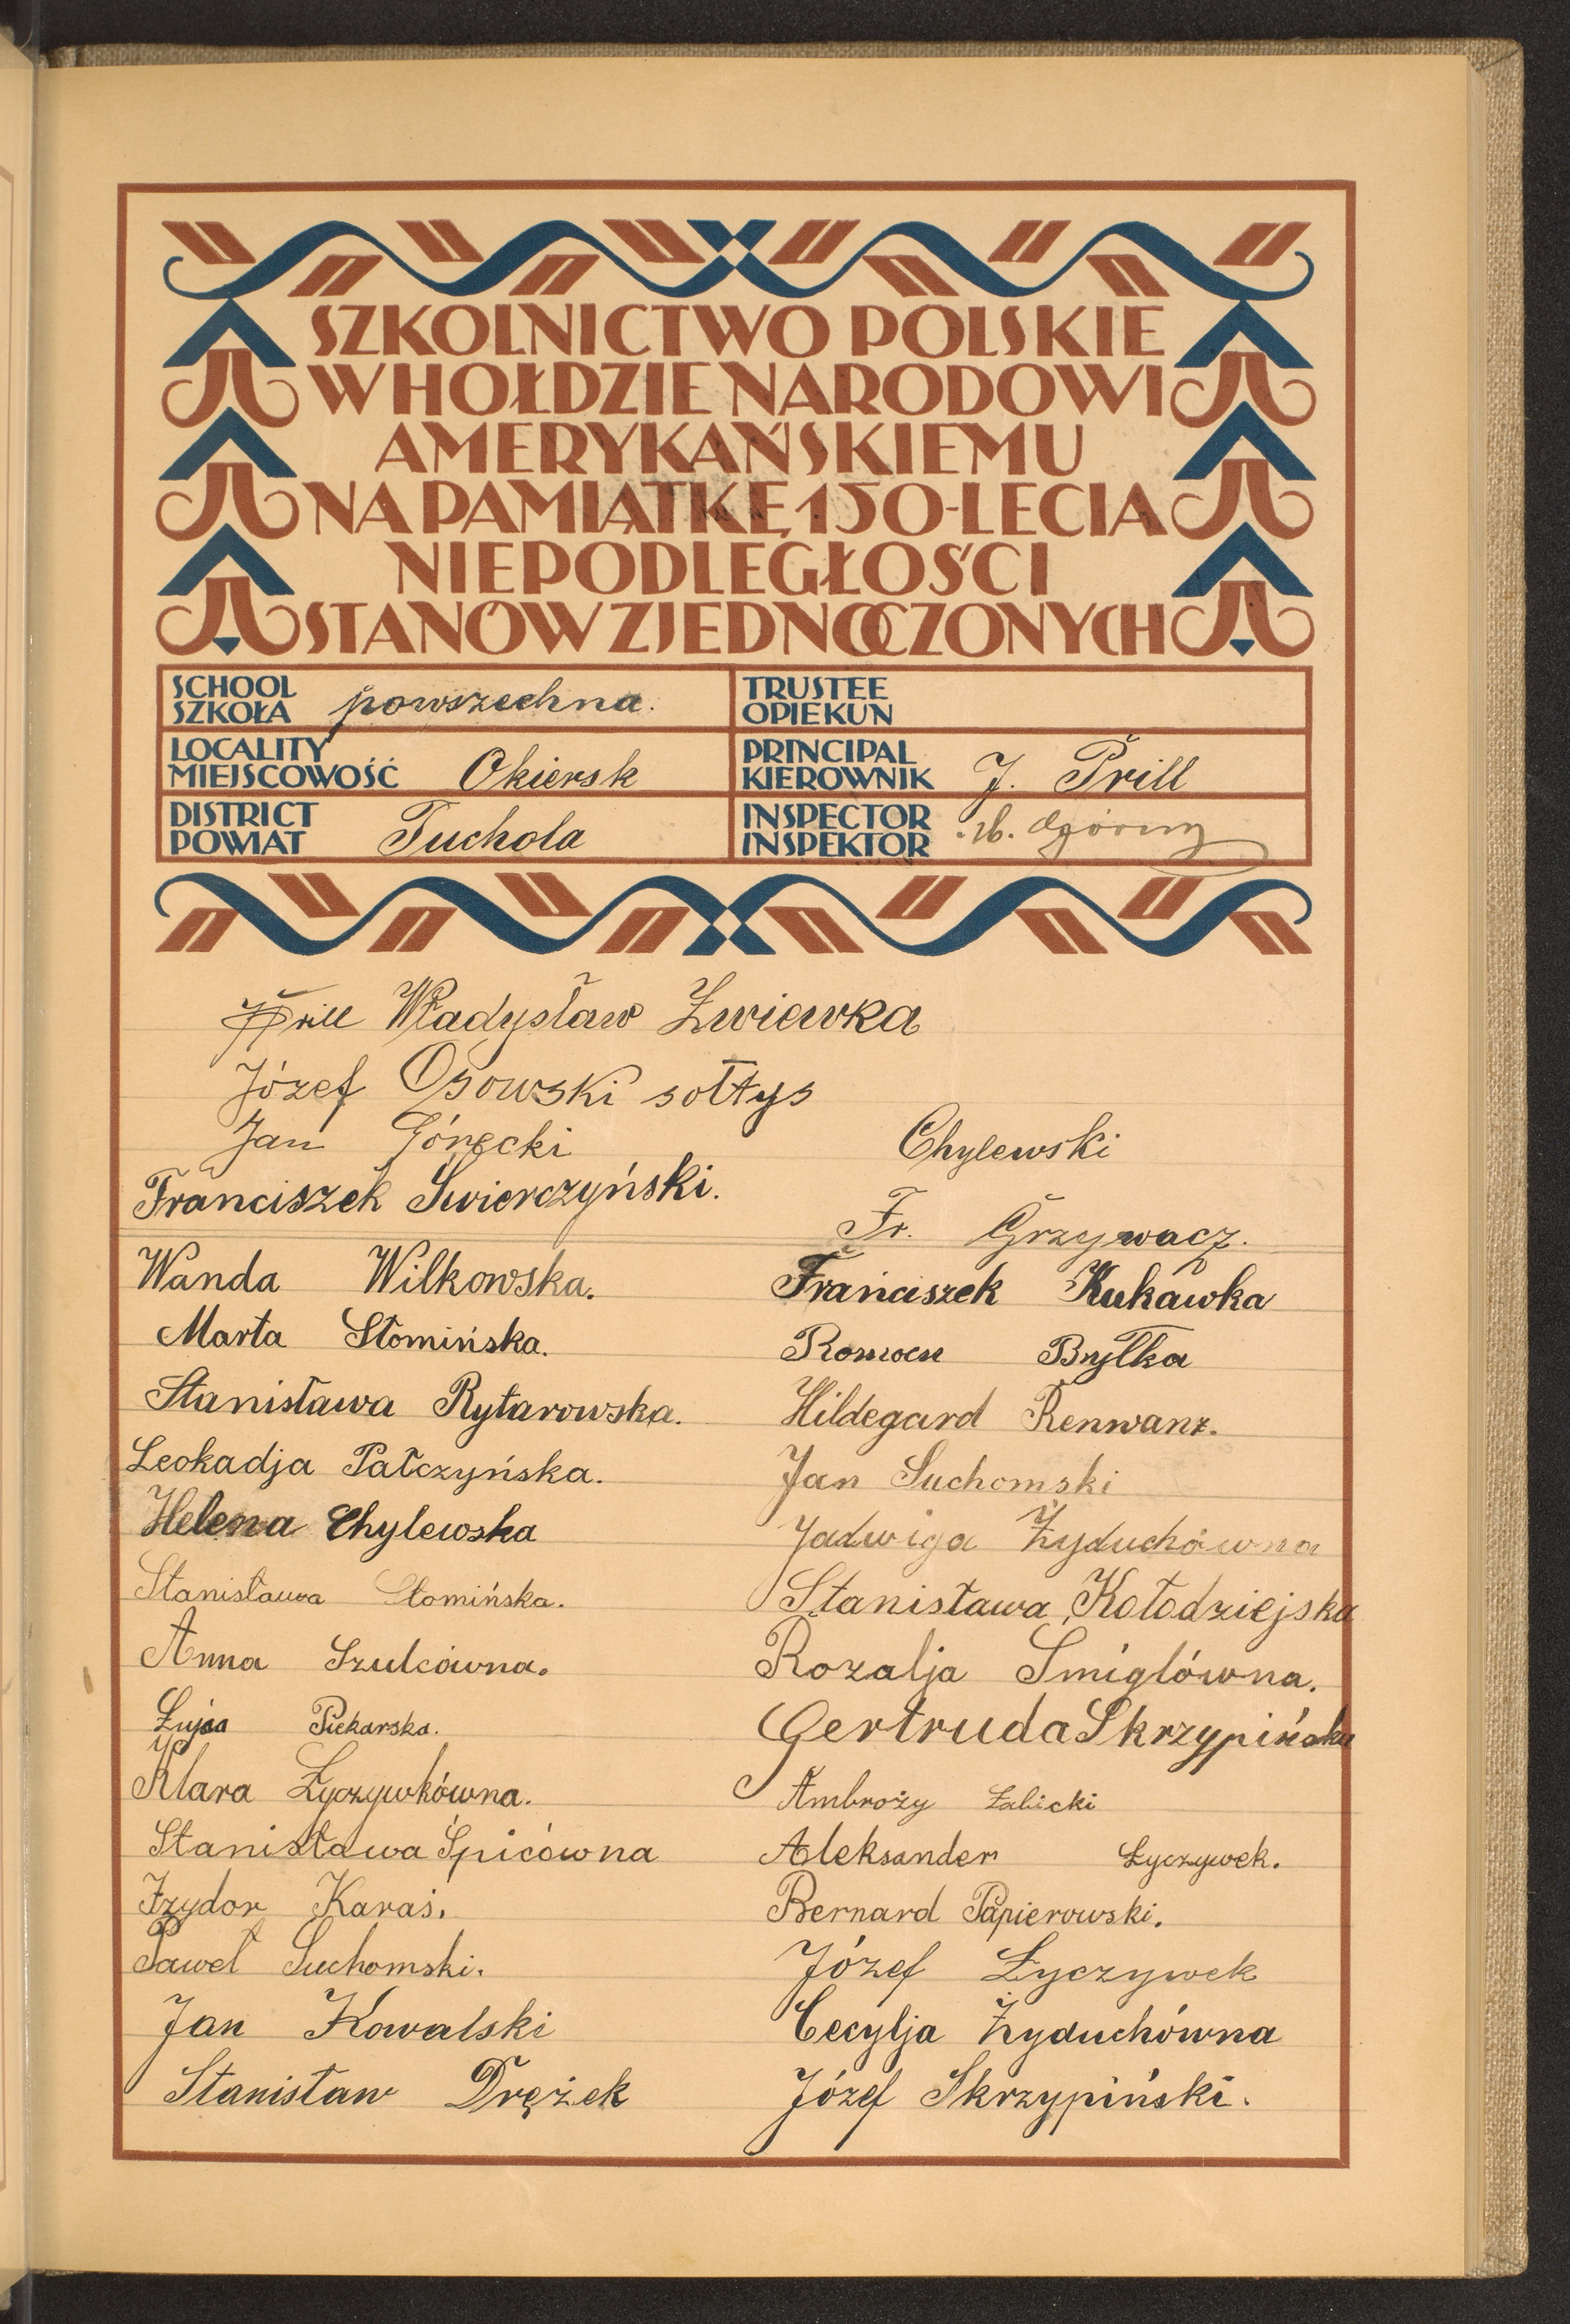 SZKOLNICTWO POLSKIE
W HOŁDZIE NARODOWI
AMERYKAŃSKIEMU
NA PAMIĄTKĘ 150-LECIA
NIEPODLEGŁOŚCI
STANÓW ZJEDNOCZONYCH
SCHOOL
SZKOŁA powszechna.
TRUSTEE
OPIEKUN
LOCALITY
MIEJSCOWOŚĆ Okiersk
PRINCIPAL
KIEROWNIK J. Prill
DISTRICT
POWIAT Tuchola
INSPECTOR
INSPEKTOR Górny
JPrill Władysław Żwiewka
Józef Osowski sołtys
Jan Górecki
Chylewski
Franciszek Świerczyński.
Fr. Grzywacz.
Wanda Wilkowska.
Franciszek Kukawka
Marta Słomińska.
Roman Bryłka
Stanisława Rytarowska.
Hildegard Renwanz.
Leokadja Pałczyńska.
Jan Suchomski
Helena Chylewska
Jadwiga Żyduchówna
Stanisława Słomińska.
Stanisława Kołodziejska
Anna Szulcówna.
Rozalja Śmiglówna.
Łucja Piekarska.
Gertruda Skrzypińska
Klara Łyczywkówna.
Ambroży Żabicki
Stanisława Śpicówna
Aleksander Łyczywek.
Izydor Karaś.
Bernard Papierowski.
Paweł Suchomski.
Józef Łyczywek
Jan Kowalski
Cecylja Żyduchówna
Stanisław Drężek
Józef Skrzypiński.